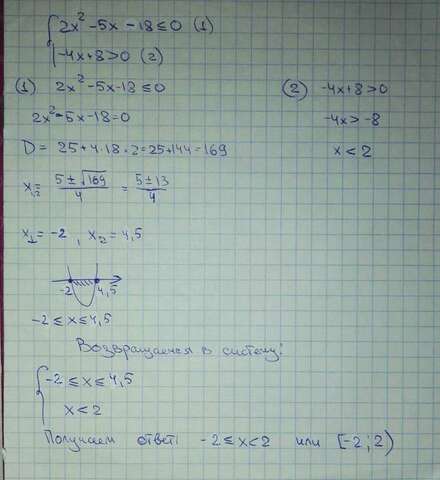 { 2x² - 5x - 18 ≤ 0 (1)
-4x + 8 > 0 (2)
(1) 2x² - 5x - 18 ≤ 0
2x² - 5x - 18 = 0
D = 25 + 4·18·2 = 25 + 144 = 169
x₁,₂ = (5 ± √169)/4 = (5 ± 13)/4
x₁ = -2, x₂ = 4,5
-2 4,5
-2 ≤ x ≤ 4,5
(2) -4x + 8 > 0
-4x > -8
x < 2
Возвращаемся в систему:
{ -2 ≤ x ≤ 4,5
x < 2
Получаем ответ: -2 ≤ x < 2 или [-2; 2)